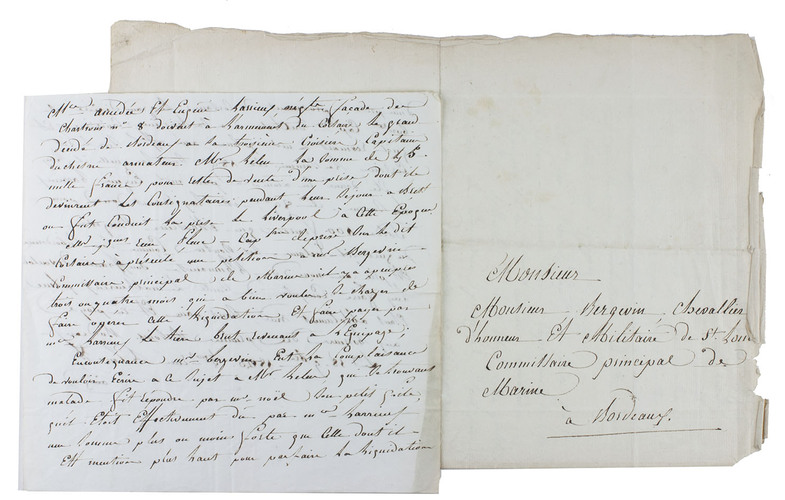 Mrs amédée Et Eugene harrieuf négts façade des
Chartrons no 8 doivent à l'armement du Corsaire le grand
de Bordeaux a la troisieme Croisiere, Capitaine
duchesne armateur Mr. helue La Somme de 45
mille francs pour reste de vente d'une prise dont ils
devinrent Les Consignataires pendant leur Séjour a Brest
ou fut Conduit La prise Le Liverpool à Cette Epoque
Mr Cap de prise Sur Le dit
Corsaire a présenté une petition a mr Bergevin
Commissaire principal de Marine il y a apeupres
trois ou quatre mois qui a bien voulu Se charger de
faire operer Cette Liquidation Et faire payer par
mrs harrieuf Le tiers brut revenant a L'Equipage ;
En conséquence mr bergevin Eut la Complaisance
de vouloir Ecrire a ce Sujet a Mr helue qui Se trouvant
malade fit repondre par mr noël Son petit fils
qu'il Etoit Effectivement du par mrs harrieuf
une Somme plus ou moins forte que Celle dont il
Est mention plus haut pour parfaire La Liquidation
Monsieur
Monsieur Bergevin, Chevallier
d'honneur Et Militaire de St Louis
Commissaire principal de
Marine
à Bordeaux.